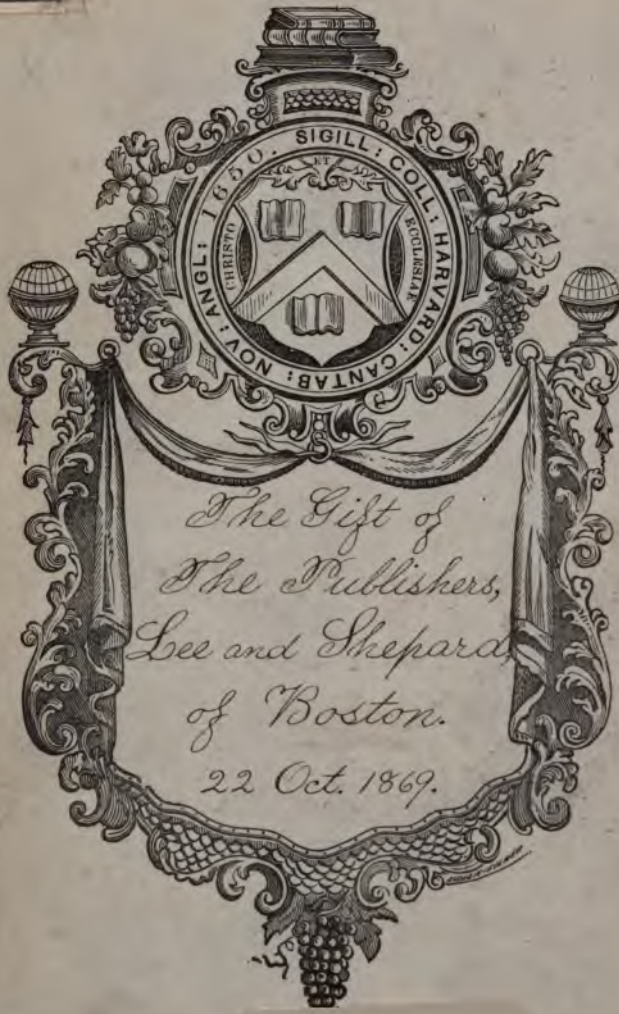 SIGILL: COLL: HARVARD: CANTAB: NOV: ANGL: 1650.
CHRISTO
ET
ECCLESIAE
The Gift of
The Publishers,
Lee and Shepard,
of Boston.
22 Oct. 1869.